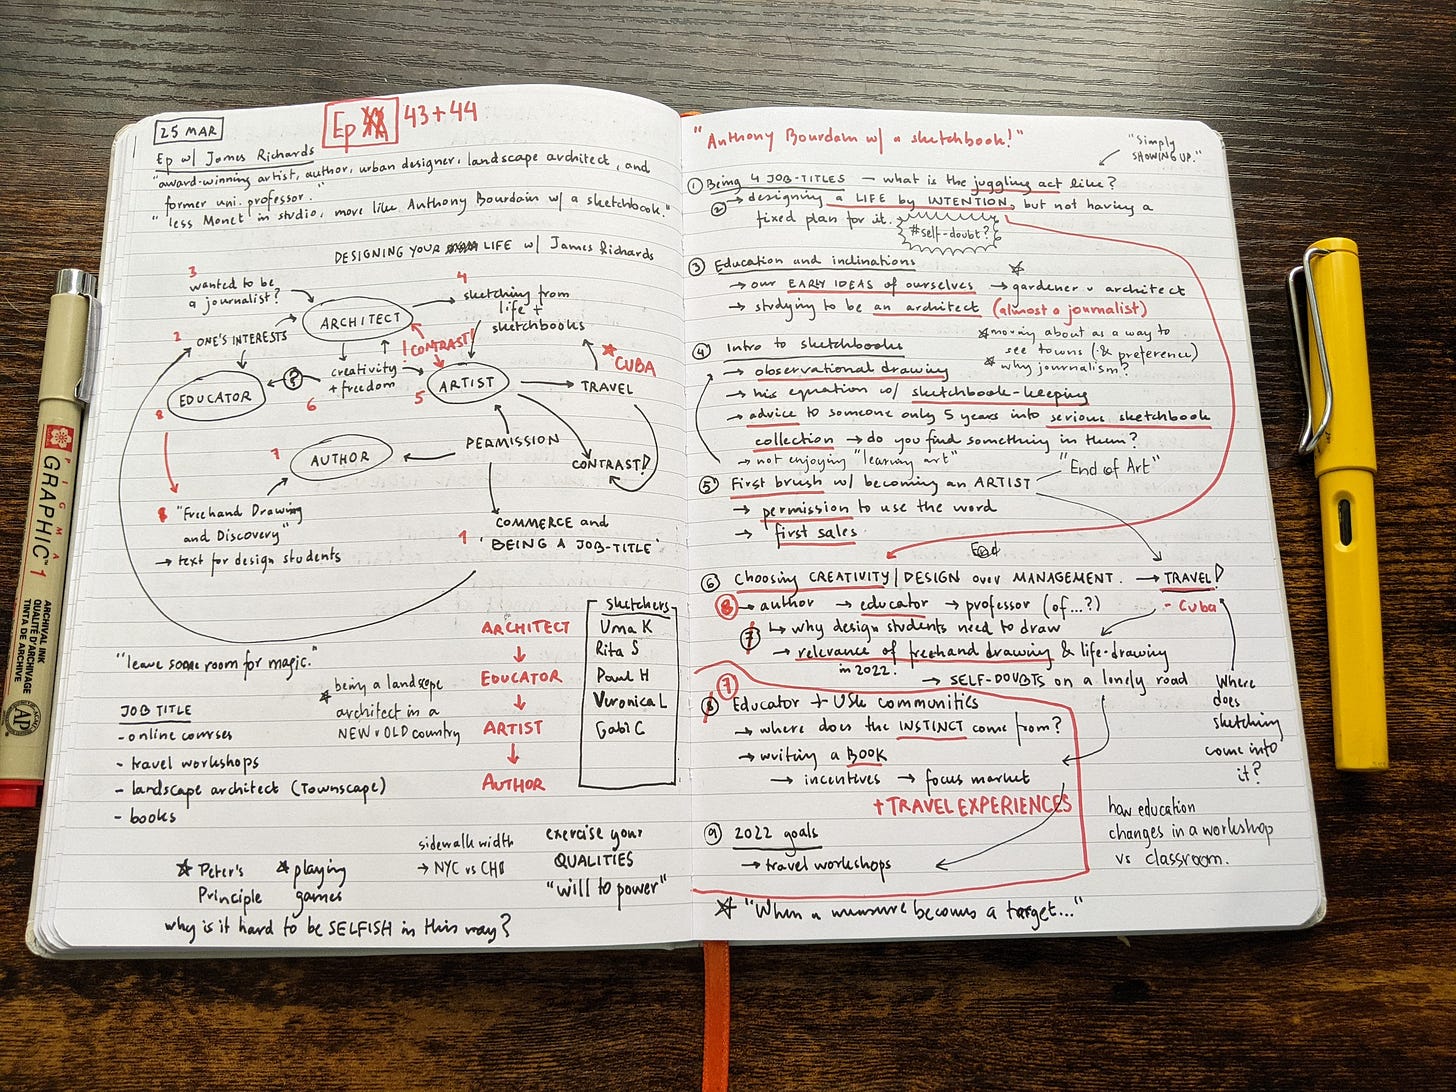 25 MAR
Ep 43+44
Ep w/ James Richards
"award-winning artist, author, urban designer, landscape architect, and
former uni. professor."
"less Monet in studio, more like Anthony Bourdain w/ a sketchbook."
DESIGNING YOUR LIFE w/ James Richards
3
wanted to be
a journalist?
ARCHITECT
4
sketching from
life +
sketchbooks
2 ONE'S INTERESTS
1 CONTRAST!
CUBA
EDUCATOR
?
creativity
+ freedom
6
5 ARTIST
TRAVEL
8
7 AUTHOR
PERMISSION
CONTRAST!
8 "Freehand Drawing
and Discovery"
→ text for design students
1
COMMERCE and
"BEING A JOB-TITLE"
"leave some room for magic."
being a landscape
architect in a
NEW v OLD country
ARCHITECT
↓
EDUCATOR
↓
ARTIST
↓
AUTHOR
Sketchers
Uma K
Rita S
Paul H
Veronica L
Gabi C
JOB TITLE
- online courses
- travel workshops
- landscape architect (Townscape)
- books
Peter's
Principle
playing
games
sidewalk width
→ NYC vs CHD
exercise your
QUALITIES
"will to power"
why is it hard to be SELFISH in this way?
"Anthony Bourdain w/ a sketchbook!"
"Simply
SHOWING UP."
① Being 4 JOB-TITLES – what is the juggling act like?
② → designing a LIFE by INTENTION, but not having a
fixed plan for it.
#self-doubt?
③ Education and inclinations
→ our EARLY IDEAS of ourselves → gardener v architect
→ studying to be an architect (almost a journalist)
moving about as a way to
see towns (& preference)
why journalism?
④ Intro to sketchbooks
→ observational drawing
→ his equation w/ sketchbook-keeping
→ advice to someone only 5 years into serious sketchbook
collection → do you find something in them?
→ not enjoying "learning art"
"End of Art"
⑤ First brush w/ becoming an ARTIST
→ permission to use the word
→ first sales
⑥ Choosing CREATIVITY/DESIGN over MANAGEMENT. → TRAVEL!
- Cuba
⑧ → author → educator → professor (of...?)
⑦ ↳ why design students need to draw
→ relevance of freehand drawing & life-drawing
in 2022.
→ SELF-DOUBTS on a lonely road
Where
does
sketching
come into
it?
⑦
Educator + USk communities
→ where does the INSTINCT come from?
→ writing a BOOK
→ incentives → focus market
+TRAVEL EXPERIENCES
how education
changes in a workshop
vs classroom.
⑨ 2022 goals
→ travel workshops
"When a measure becomes a target..."
PIGMA
GRAPHIC™ 1
ARCHIVAL INK
QUALITÉ D'ARCHIVE
TINTA DE ARCHIVE
AP